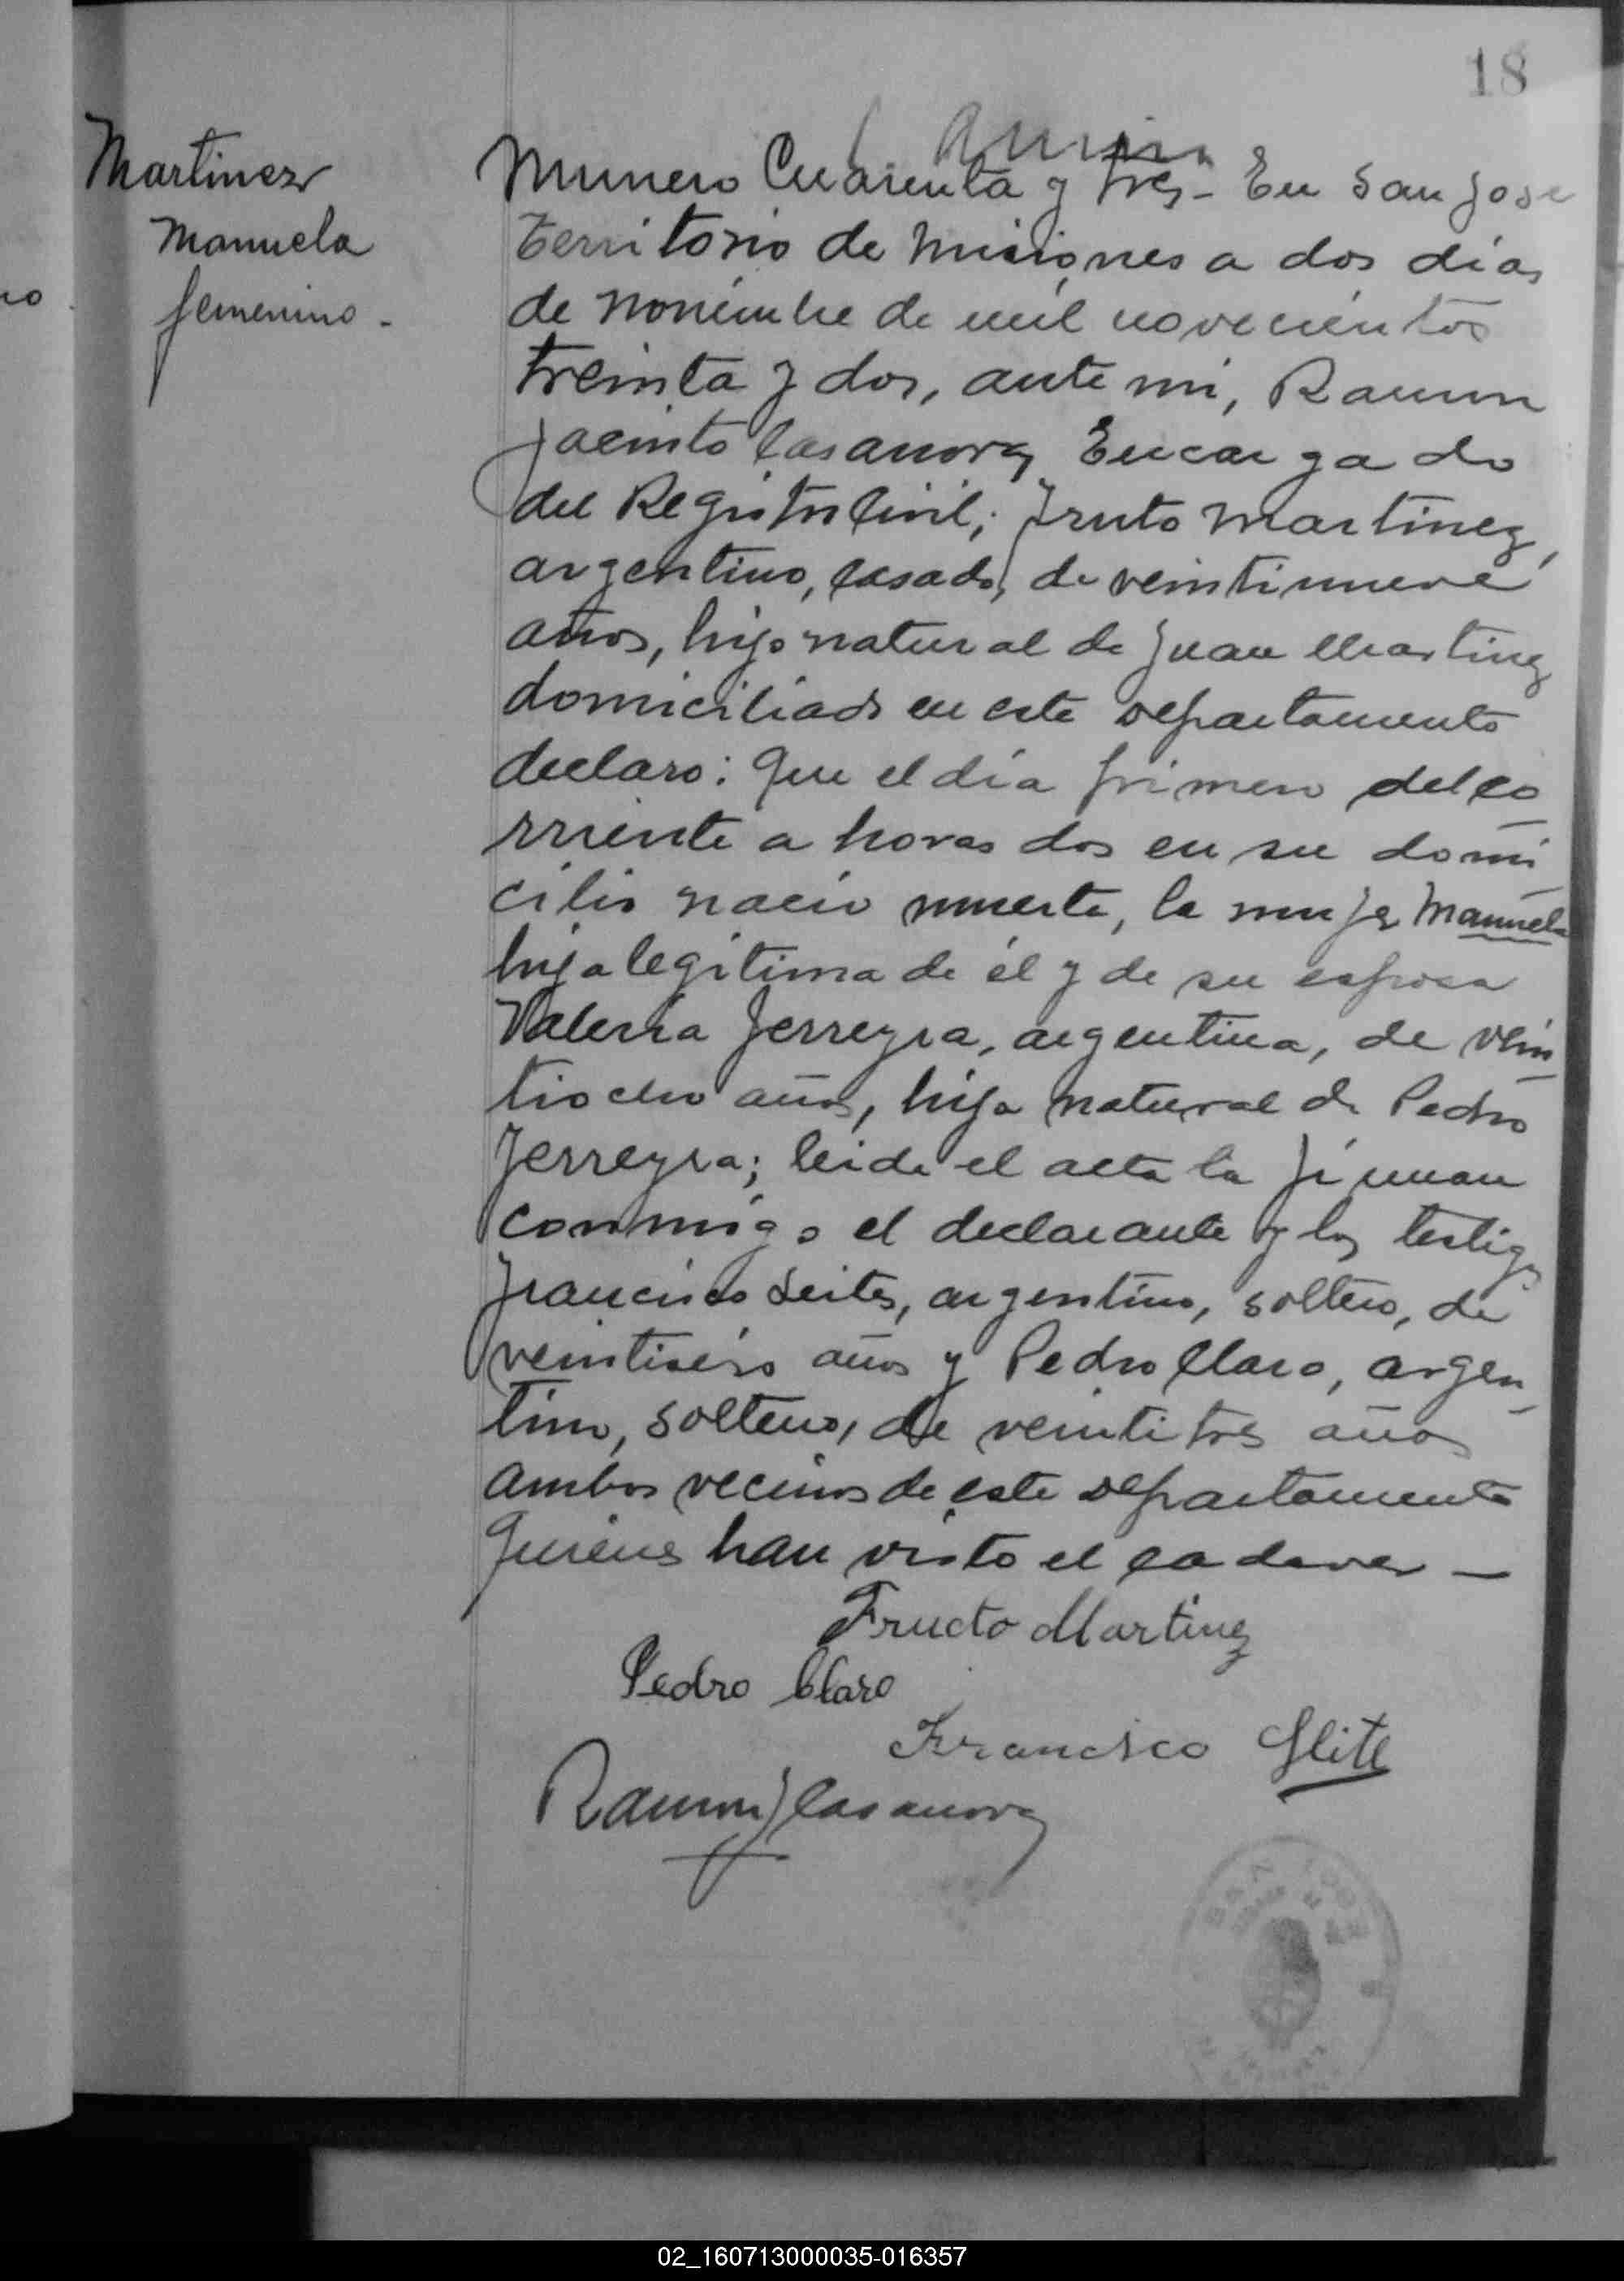 18
Martinez
Manuela
femenino -
Numero Cuarenta y tres - En San Jose
territorio de Misiones a dos días
de noviembre de mil novecientos
treinta y dos, ante mi, Ramon
Jacinto Casanova Encargado
del Registro Civil; Fruto Martinez,
argentino, casado, de veintinueve
años, hijo natural de Juan Martinez
domiciliado en este departamento
declaro: Que el día primero del co
rriente a horas dos en su domi
cilio nacio muerta, la mujer Manuela
hija legitima de él y de su esposa
Valeria Ferreyra, argentina, de vein
tiocho años, hija natural de Pedro
Ferreyra; leida el acta la firman
conmigo el declarante y los testigos
Francisco Leites, argentino, soltero, de
veintiseis años y Pedro Claro, argen
tino, soltero, de veintitres años
ambos vecinos de este departamento
quienes han visto el cadaver —
Fructo Martinez
Pedro Claro
Francisco
Ramon J Casanova
SAN JOSE
02_160713000035-016357